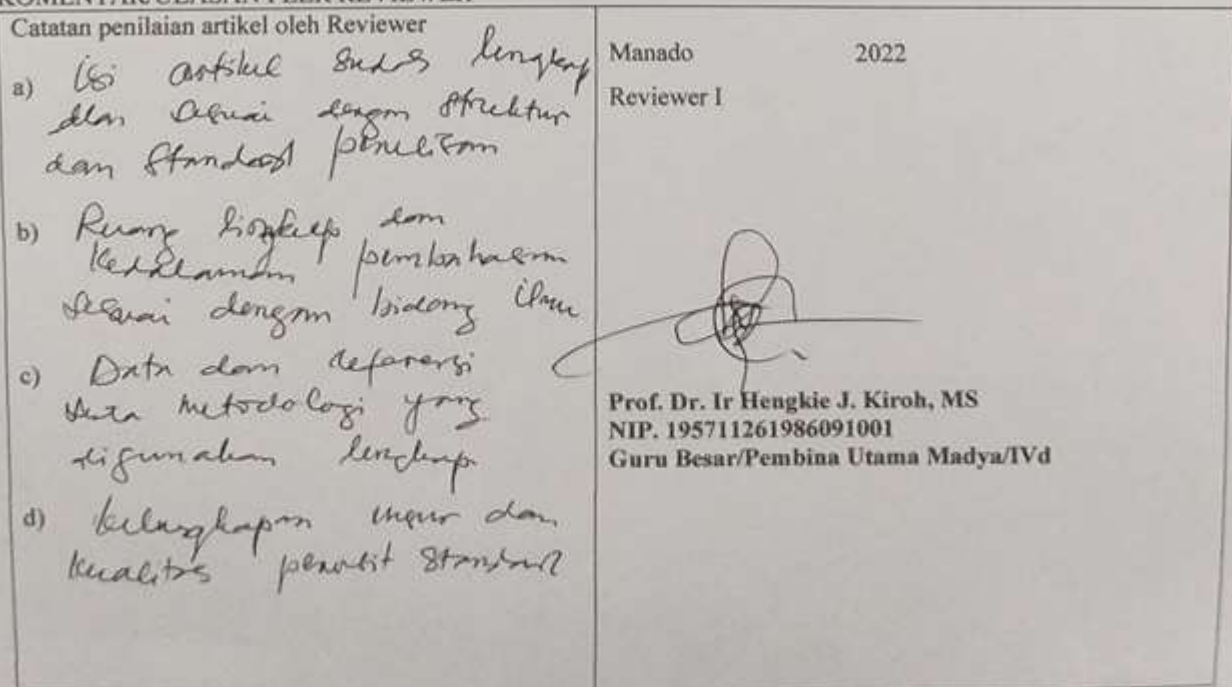 KOMENTAR/ULASAN PEER REVIEWER
Catatan penilaian artikel oleh Reviewer
a) Isi artikel sudah lengkap
dan sesuai dengan struktur
dan standard penelitian
b) Ruang lingkup dan
kedalaman pembahasan
sesuai dengan bidang ilmu
c) Data dan referensi
serta metodologi yang
digunakan lengkap
d) kelengkapan unsur dan
kualitas penerbit standard
Manado 2022
Reviewer I
Prof. Dr. Ir Hengkie J. Kiroh, MS
NIP. 195711261986091001
Guru Besar/Pembina Utama Madya/IVd